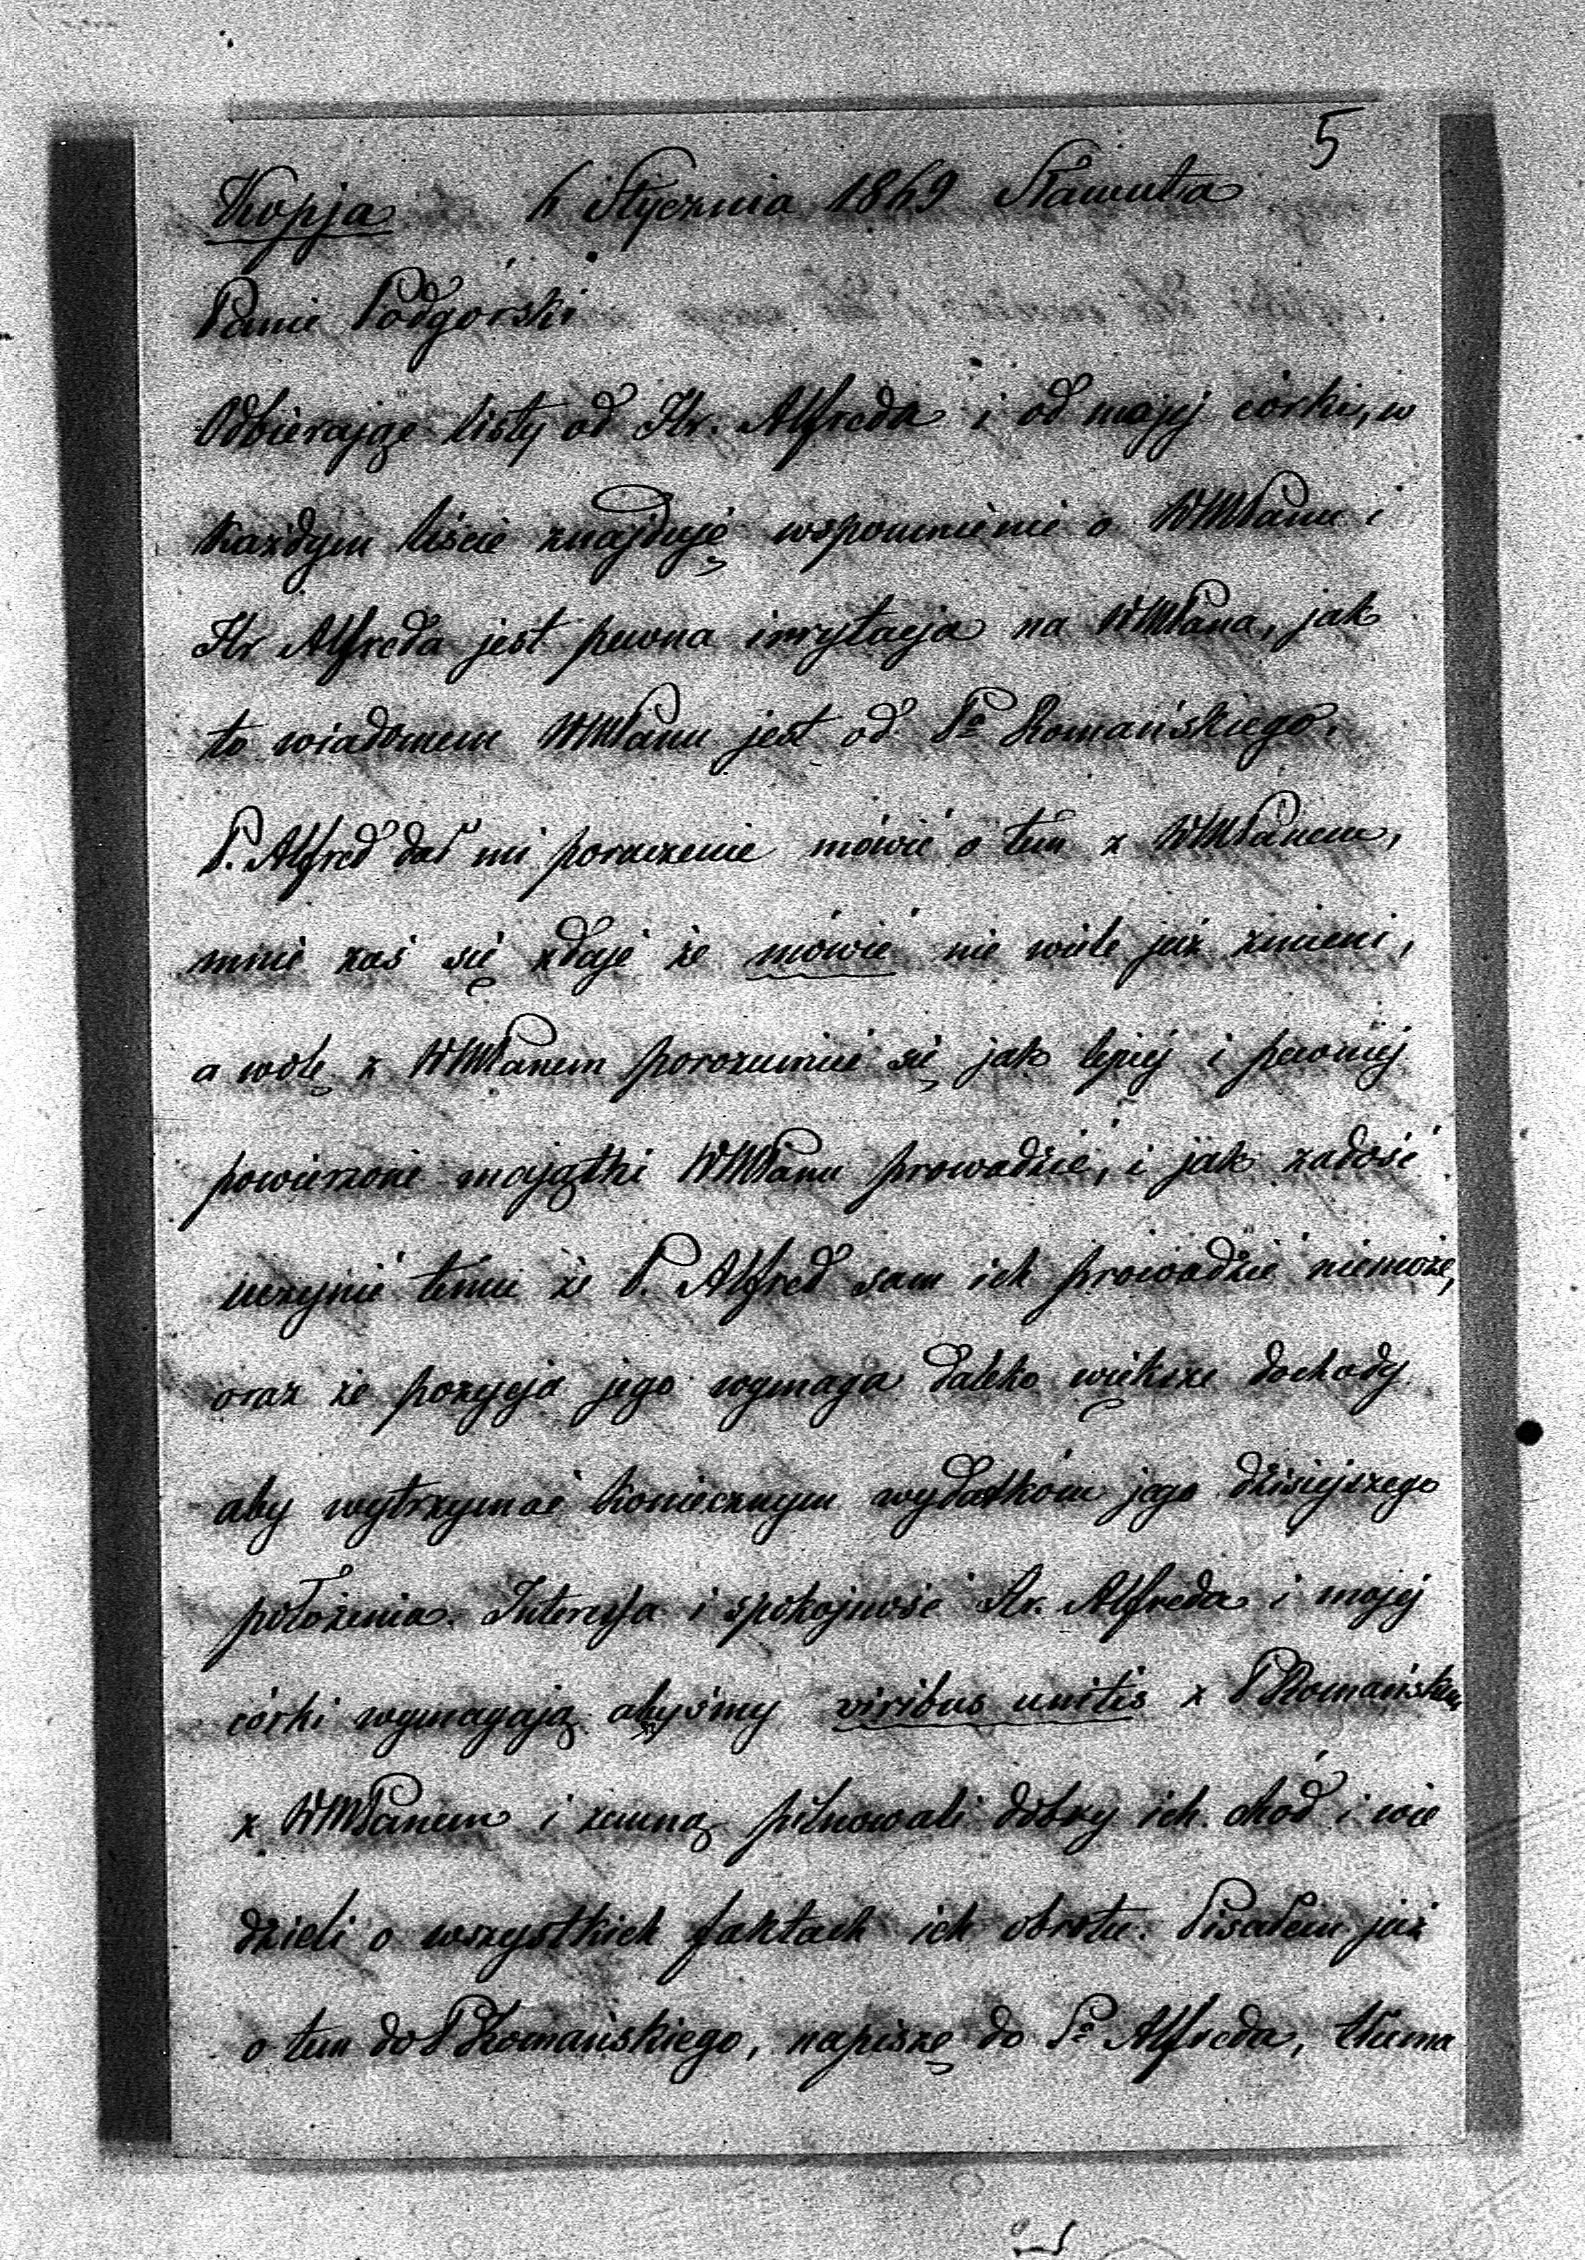 5
Kopja 4 Stycznia 1849 Sławuta
Panie Podgórski
Odbierając listy od Hr. Alfreda i od mojej córki, w
każdym liście znajduję wspomnienie o WMPanu i
Hr Alfreda jest pewna irrytacja na WMPana, jak
to wiadomem WMPanu jest od Pa Romańskiego.
P. Alfred dał mi poruczenie mówić o tem z WMPanem,
mnie zaś się zdaje że mówić nie wiele już zmieni,
a wolę z WMPanem porozumieć się jak lepiej i pewniej
powierzone majątki WMPanu prowadzić, i jak zadość
uczynić temu że P. Alfred sam ich prowadzić niemoże,
oraz że pozycja jego wymaga daleko większe dochody
aby wytrzymać koniecznym wydatkóm jego dzisiejszego
położenia. Interessa i spokojność Hr. Alfreda i mojej
córki wymagają abyśmy viribus unitis z PRomańskim
z WMPanem i zemną pilnowali dobry ich chód i wie
dzieli o wszystkich faktach ich obrotu. Pisałem już
o tem do PRomańskiego, napiszę do Pa Alfreda, tłuma